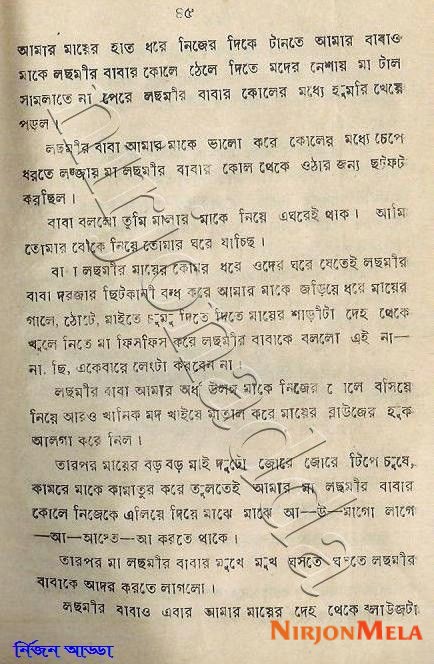 ৪৫
আমার মায়ের হাত ধরে নিজের দিকে টানতে আমার বাবাও
মাকে লছমীর বাবার কোলে ঠেলে দিতে মদের নেশায় মা টাল
সামলাতে না পেরে লছমীর বাবার কোলের মধ্যে হুমরি খেয়ে
পড়ল।
লছমীর বাবা আমার মাকে ভালো করে কোলের মধ্যে চেপে
ধরতে লজ্জায় মা লছমীর বাবার কোল থেকে ওঠার জন্য ছটফট
করছিল।
বাবা বললো তুমি মালার মাকে নিয়ে এঘরেই থাক। আমি
তোমার বৌকে নিয়ে তোমার ঘরে যাচ্ছি।
লছমীর মায়ের কোমর ধরে ওদের ঘরে যেতেই লছমীর
বাবা দরজার ছিটকানী বন্ধ করে আমার মাকে জড়িয়ে ধরে মায়ের
গালে, ঠোটে, মাইতে চুমু দিতে দিতে মায়ের শাড়ীটা দেহ থেকে
খুলে নিতে মা ফিসফিস করে লছমীর বাবাকে বললো এই না—
না, ছি, একেবারে লেংটা করবেন না।
লছমীর বাবা আমার অর্ধ উলঙ্গ মাকে নিজের বসিয়ে
নিয়ে আরও খানিক মদ খাইয়ে মাতাল করে মায়ের ব্লাউজের হুক
আলগা করে নিল।
তারপর মায়ের বড় বড় মাই দুটো জোরে জোরে টিপে চুষে,
কামরে মাকে কামাতুর করে তুলতেই আমার মা লছমীর বাবার
কোলে নিজেকে এলিয়ে দিয়ে মাঝে মাঝে আ—উ—মাগো লাগে
—আ—আস্তে—আ করতে থাকে।
তারপর মা লছমীর বাবার মুখে মুখ ঘসতে ঘসতে লছমীর
বাবাকে আদর করতে লাগলো।
লছমীর বাবাও এবার আমার মায়ের দেহ থেকে ব্লাউজটা
nirjonadda
নির্জন আড্ডা
NIRJONMELA